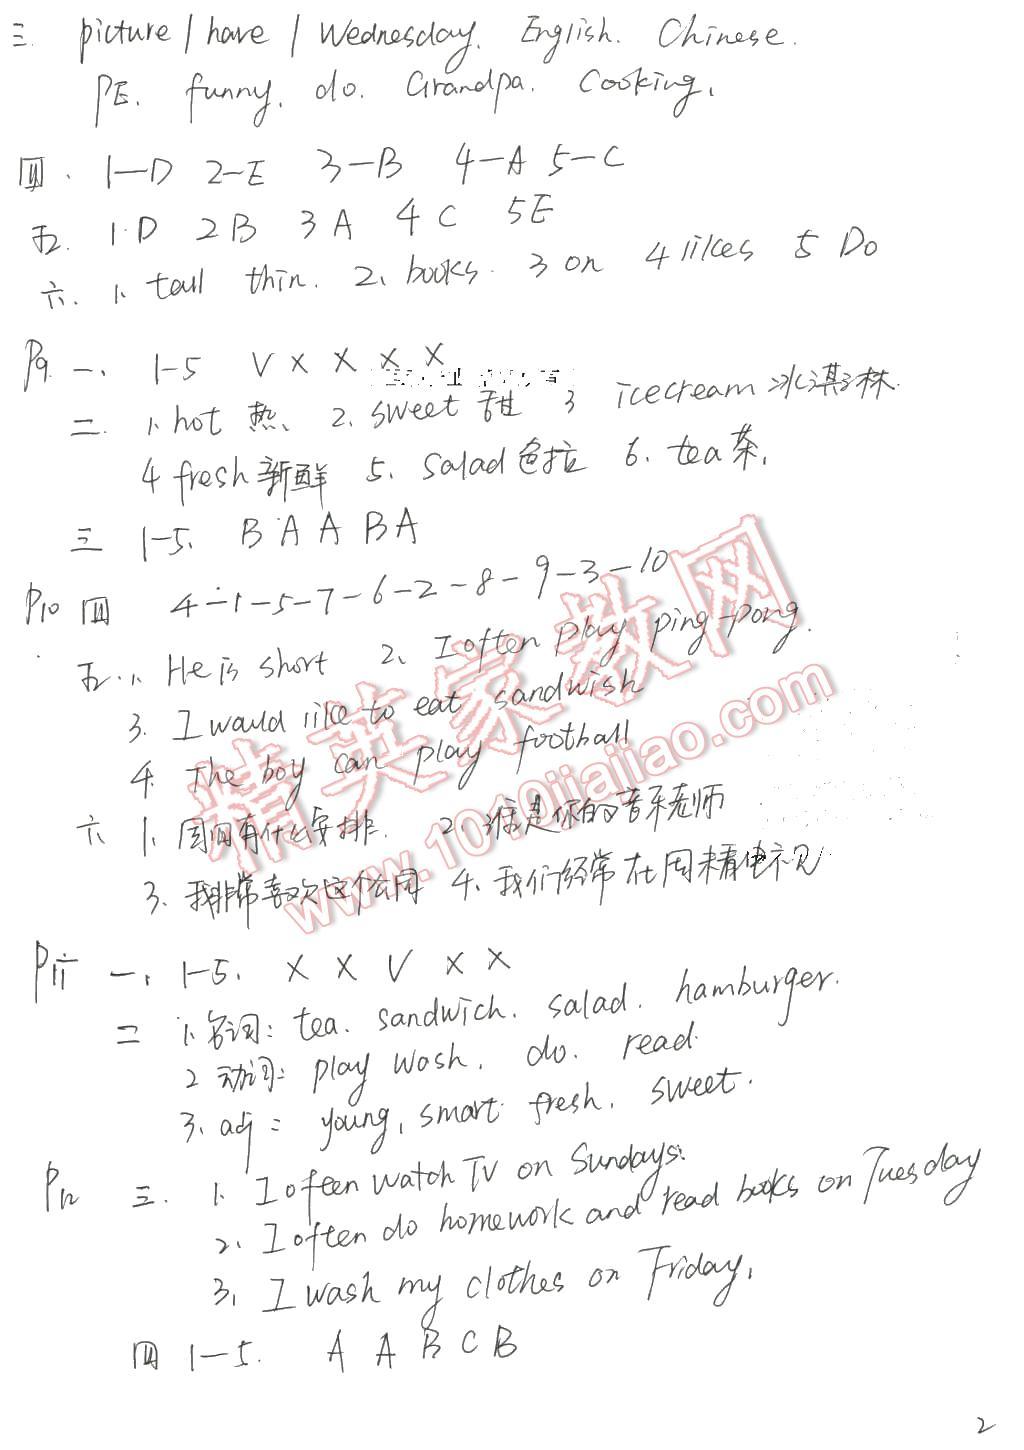 三. picture / have / Wednesday. English. Chinese.
PE. funny. do. Grandpa. Cooking.
四. 1—D 2—E 3—B 4—A 5—C
五. 1.D 2B 3A 4C 5E
六. 1. tall thin. 2. books. 3 on 4 likes 5 Do
P9 一. 1-5 V X X X X
二. 1. hot 热. 2. sweet 甜 3 icecream 冰淇淋.
4 fresh 新鲜 5. salad 色拉 6. tea 茶.
三 1-5. B A A B A
P10 四 4-1-5-7-6-2-8-9-3-10
五. 1. He is short 2. I often play ping-pong.
3. I would like to eat sandwish
4. The boy can play football
六 1. 周四有什么安排. 2. 谁是你的音乐老师
3. 我非常喜欢这个公园 4. 我们经常在周末看电视
P11 一. 1-5. X X V X X
二 1. 名词: tea. sandwich. salad. hamburger.
2 动词: play wash. do. read.
3. adj: young, smart fresh. sweet.
P12 三. 1. I often watch TV on Sundays.
2. I often do homework and read books on Tuesday
3. I wash my clothes on Friday.
四 1-5. A A B C B
精英家教网
www.1010jiajiao.com
2